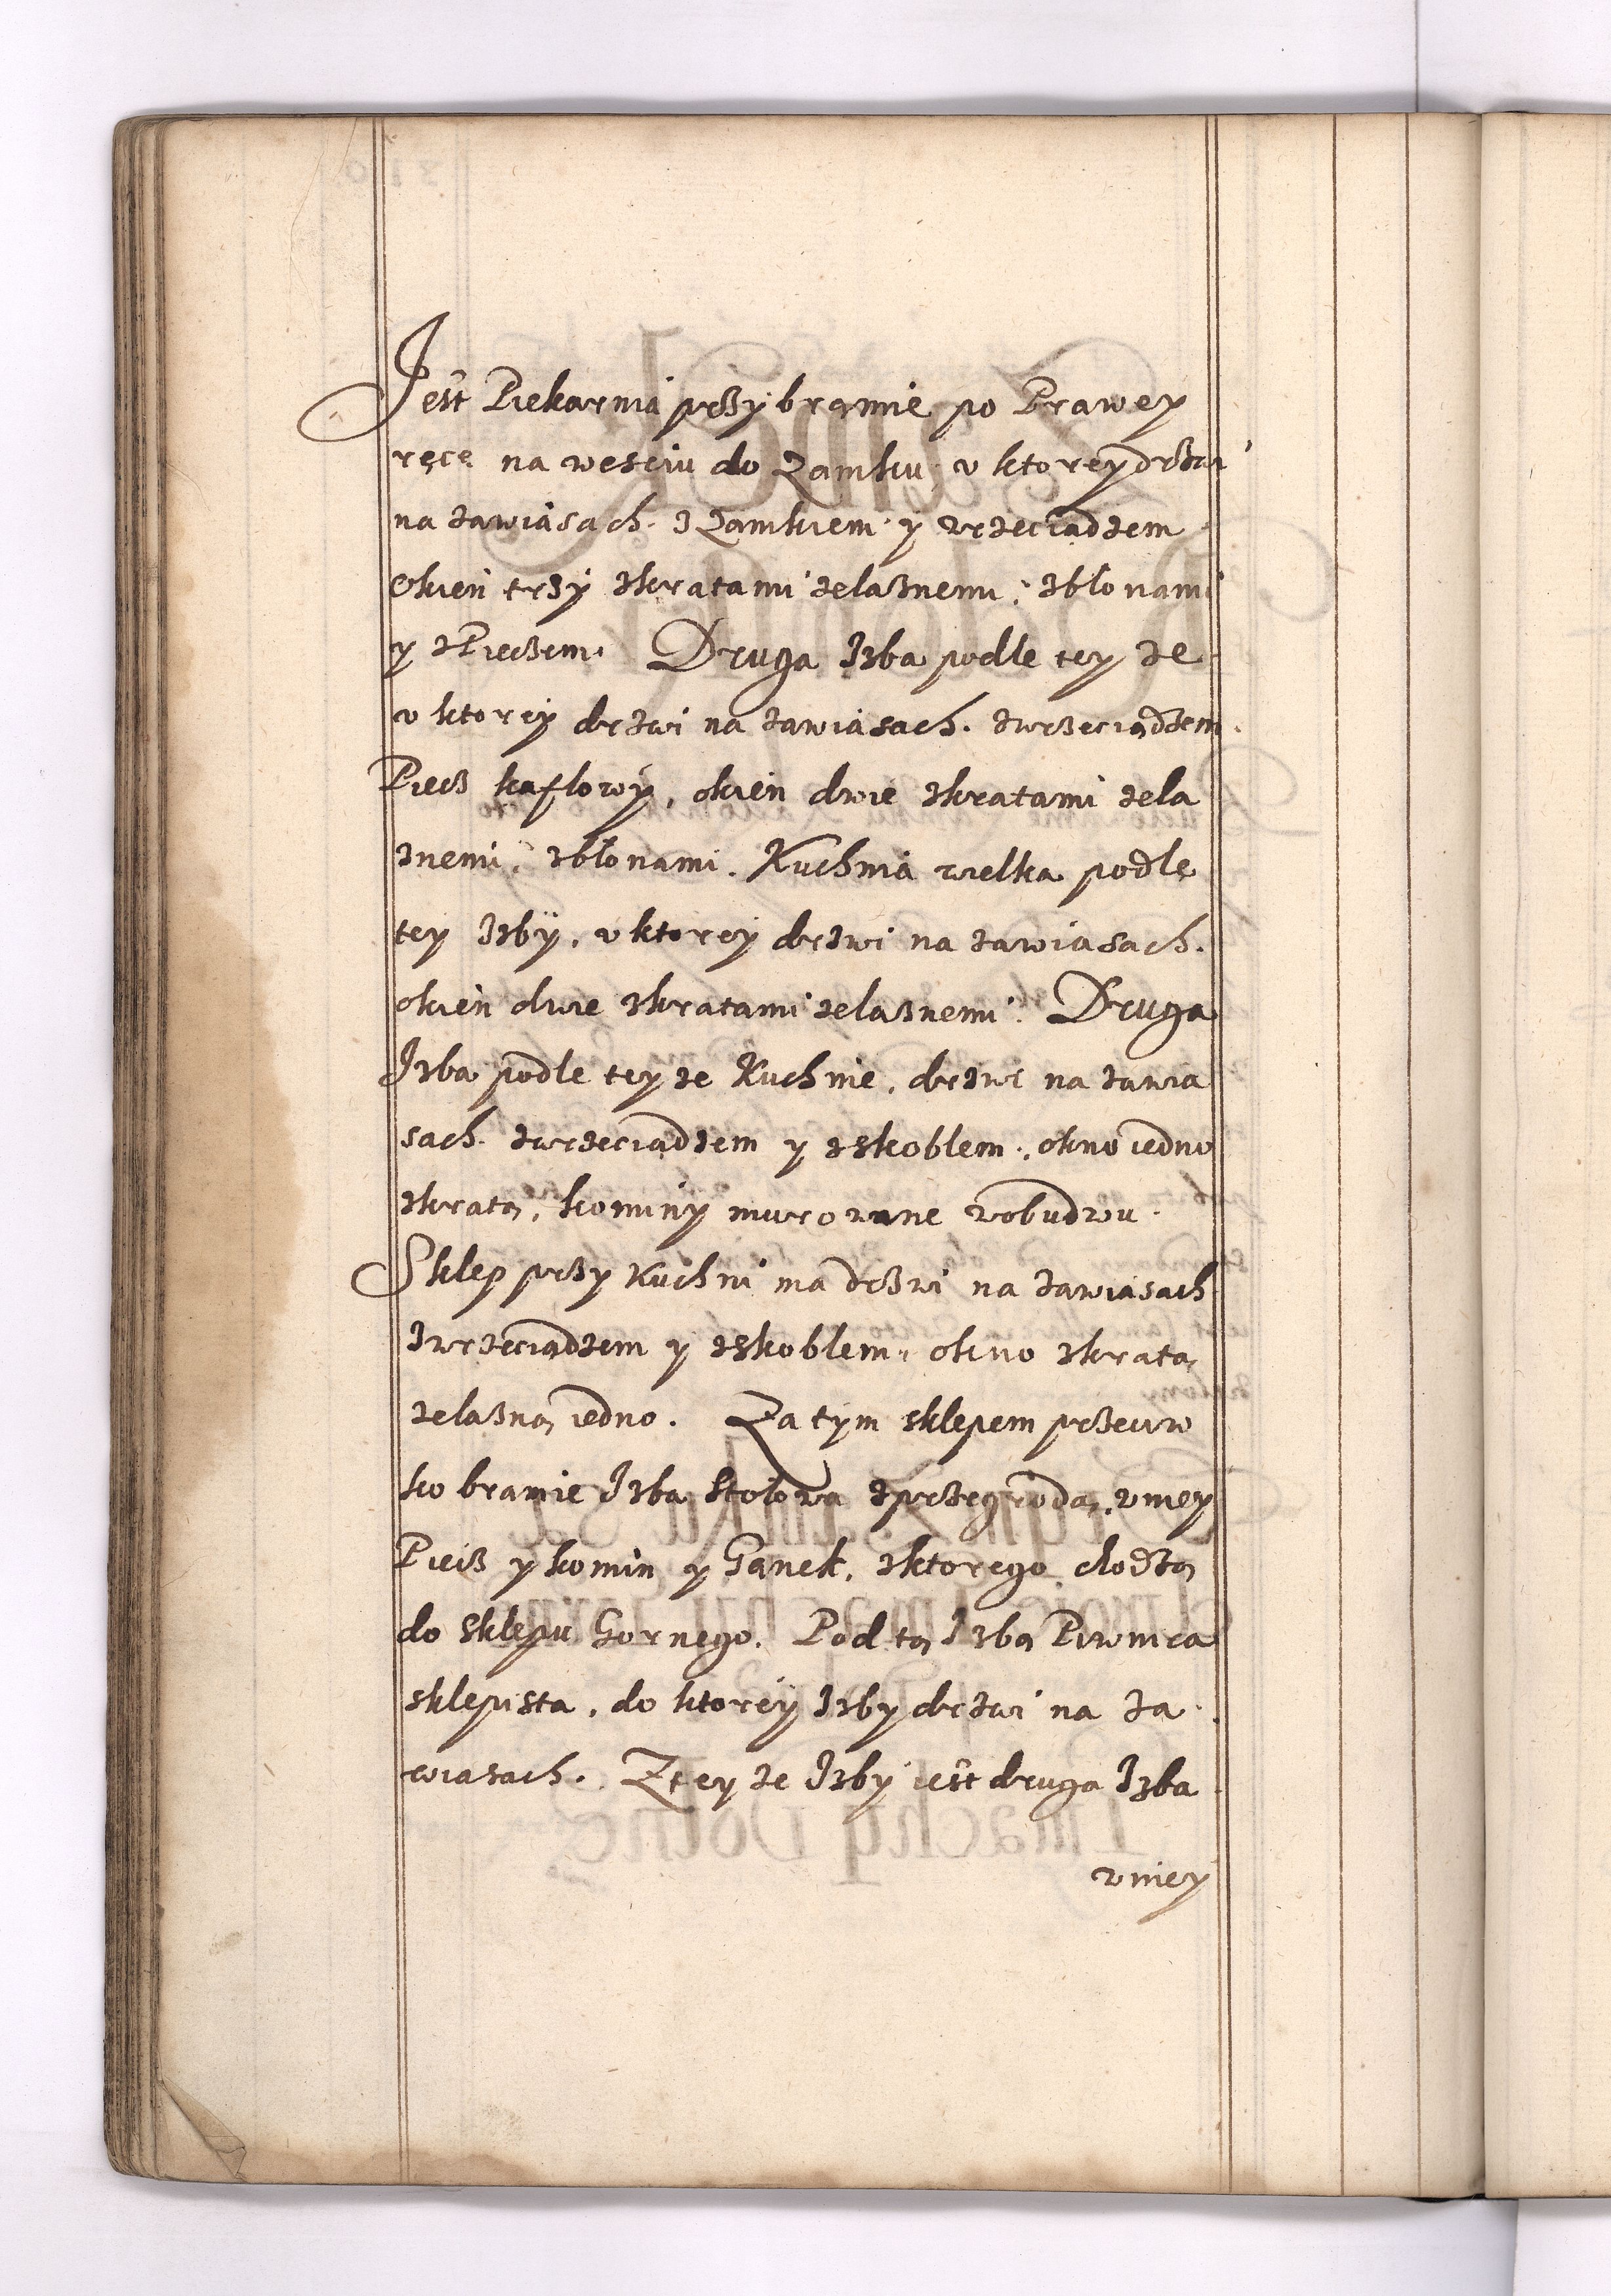 Jest Piekarnia przy bramie po Prawey
ręce na wesciu do Zamku, v ktorey drzwi
na zawiasach. z Zamkiem y wrzeciądzem
okien trzy zkratami zelaznemi, zbłonami
y zPiecem. Druga Izba podle tey ze
v ktorey drzwi na zawiasach. zwrzeciądzem.
Piecz kaflowy, okien dwie zkratami zela
znemi, zbłonami. Kuchnia wielka podle
tey Izby, v ktorey drzwi na zawiasach.
okien dwie zkratami zelaznemi. Druga
Izba podle tey ze Kuchnie, drzwi na zawia
sach. zwrzeciądzem y zskoblem, okno iedno
zkratą, kominy murowane wobudwu.
Sklep przy Kuchni ma drzwi na zawiasach
zwrzeciądzem y zskoblem, okno zkratą
zelazną iedno. Za tym sklepem przeciw
ko bramie Izba Stołowa zprzegrodą, wniey
Piecz y komin y Ganek, zktorego chodzą
do Sklepu Gornego. Pod tą Izbą Piwnica
sklepista, do ktorey Izby drzwi na za
wiasach. Ztey ze Izby iest druga Izba
wniey